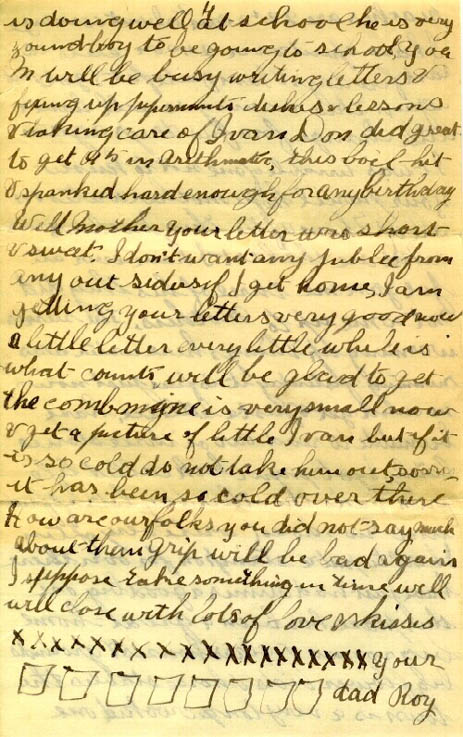 is doing well at school he is very
young boy to be going to school, y or
m will be busy writing letters &
fixing up peppermints dishes & lessons
& taking care of Ivan Don did great
to get A's in arithmatic, this boil hit
& spanked hard enough for any birthday
Well Mother your letter was short
& sweat. I don't want any Jublee from
any out sidus if I get home, I am
getting your letters very good now
a little letter every little while is
what counts, will be glad to get
the comb mine is very small now
& get a picture of little Ivan but if it
is so cold do not take him out,
it has been so cold over there
how are our folks you did not say much
about them Grip will be bad again
I suppose take something in time well
will close with lots of love & kisses
xxxxxxxxxxxxxxxxxxxx your
dad Roy